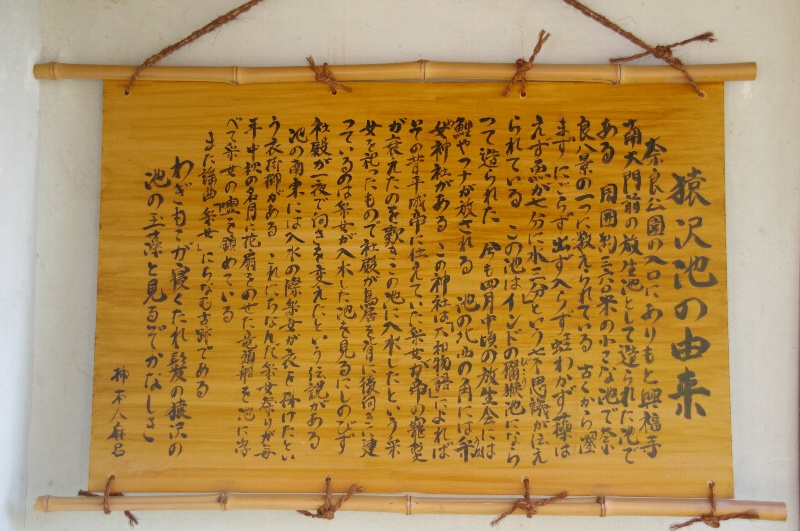 猿沢池の由来
奈良公園の入口にありもと興福寺
南大門前の放生池として造られた池で
ある 周囲約三六〇米の小さな池で奈
良八景の一つに数えられている 古くから澄
まず にごらず 出ず入らず 蛙わかず 藻は
えず 魚が七分に水三分」という七不思議が伝え
られている この池はインドの獼猴池になら
って造られた 今も四月中頃の放生会には
鯉やフナが放される 池の北西の角には采
女神社がある この神社は「大和物語」によれば
その昔平城帝に仕えていた采女が帝の寵愛
が衰えたのを歎きこの池に入水したという 采
女を祀ったもので社殿が鳥居を背に後向きに建
っているのは采女が入水した池を見るにしのびず
社殿が一夜で向きを変えたという伝説がある
池の南東には入水の際采女が衣を掛けたとい
う衣掛柳がある これにちなんだ采女祭りが毎
年中秋の名月に花扇をのせた竜頭船を池に浮
べて采女の霊を鎮めている
また謡曲「采女」にちなむ古跡である
わぎもこが寝くたれ髪の猿沢の
池の玉藻と見るぞかなしき
柿本人麻呂